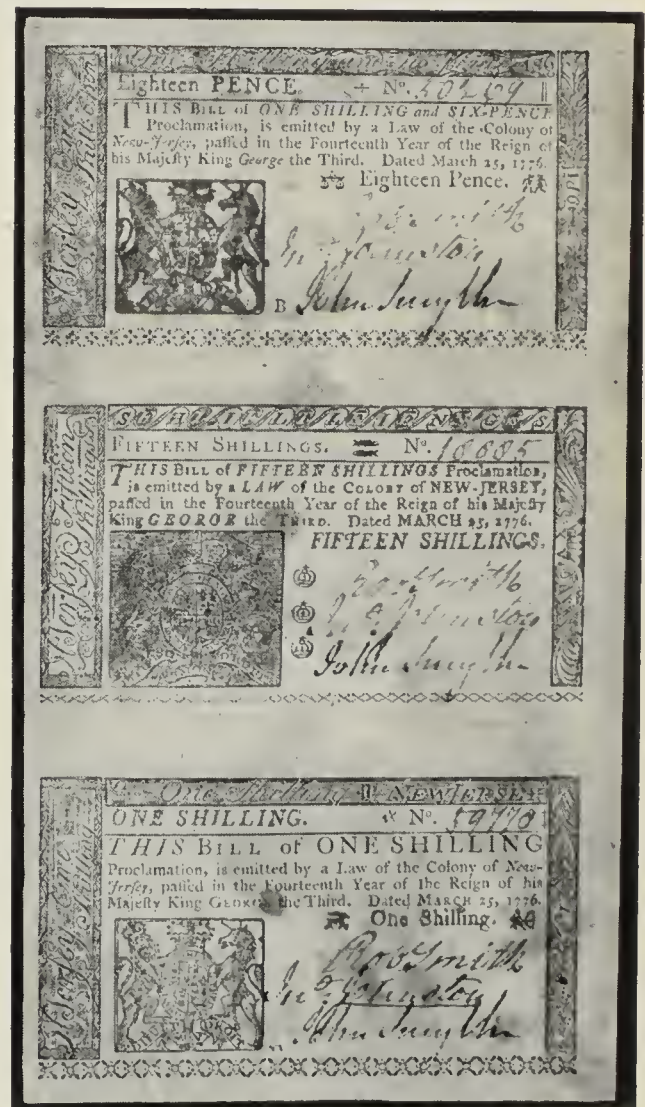 Eighteen PENCE. Nº.
THIS BILL of ONE SHILLING and SIX-PENCE
Proclamation, is emitted by a Law of the Colony of
New-Jerſey, paſſed in the Fourteenth Year of the Reign of
his Majeſty King George the Third. Dated March 25, 1776.
Eighteen Pence.
Smith
Johnston
B John Smyth
FIFTEEN SHILLINGS. Nº. 18885
THIS BILL of FIFTEEN SHILLINGS Proclamation,
is emitted by a LAW of the COLONY of NEW-JERSEY,
paſſed in the Fourteenth Year of the Reign of his Majeſty
King GEOROR the THIRD. Dated MARCH 25, 1776.
FIFTEEN SHILLINGS.
Smith
Johnston
John Smyth
One Shilling NEW JERSEY
ONE SHILLING. Nº. 59770
THIS BILL of ONE SHILLING
Proclamation, is emitted by a Law of the Colony of New-
Jerſey, paſſed in the Fourteenth Year of the Reign of his
Majeſty King GEORGE the Third. Dated MARCH 25, 1776.
One Shilling.
Rob Smith
Jnº Johnston
John Smyth